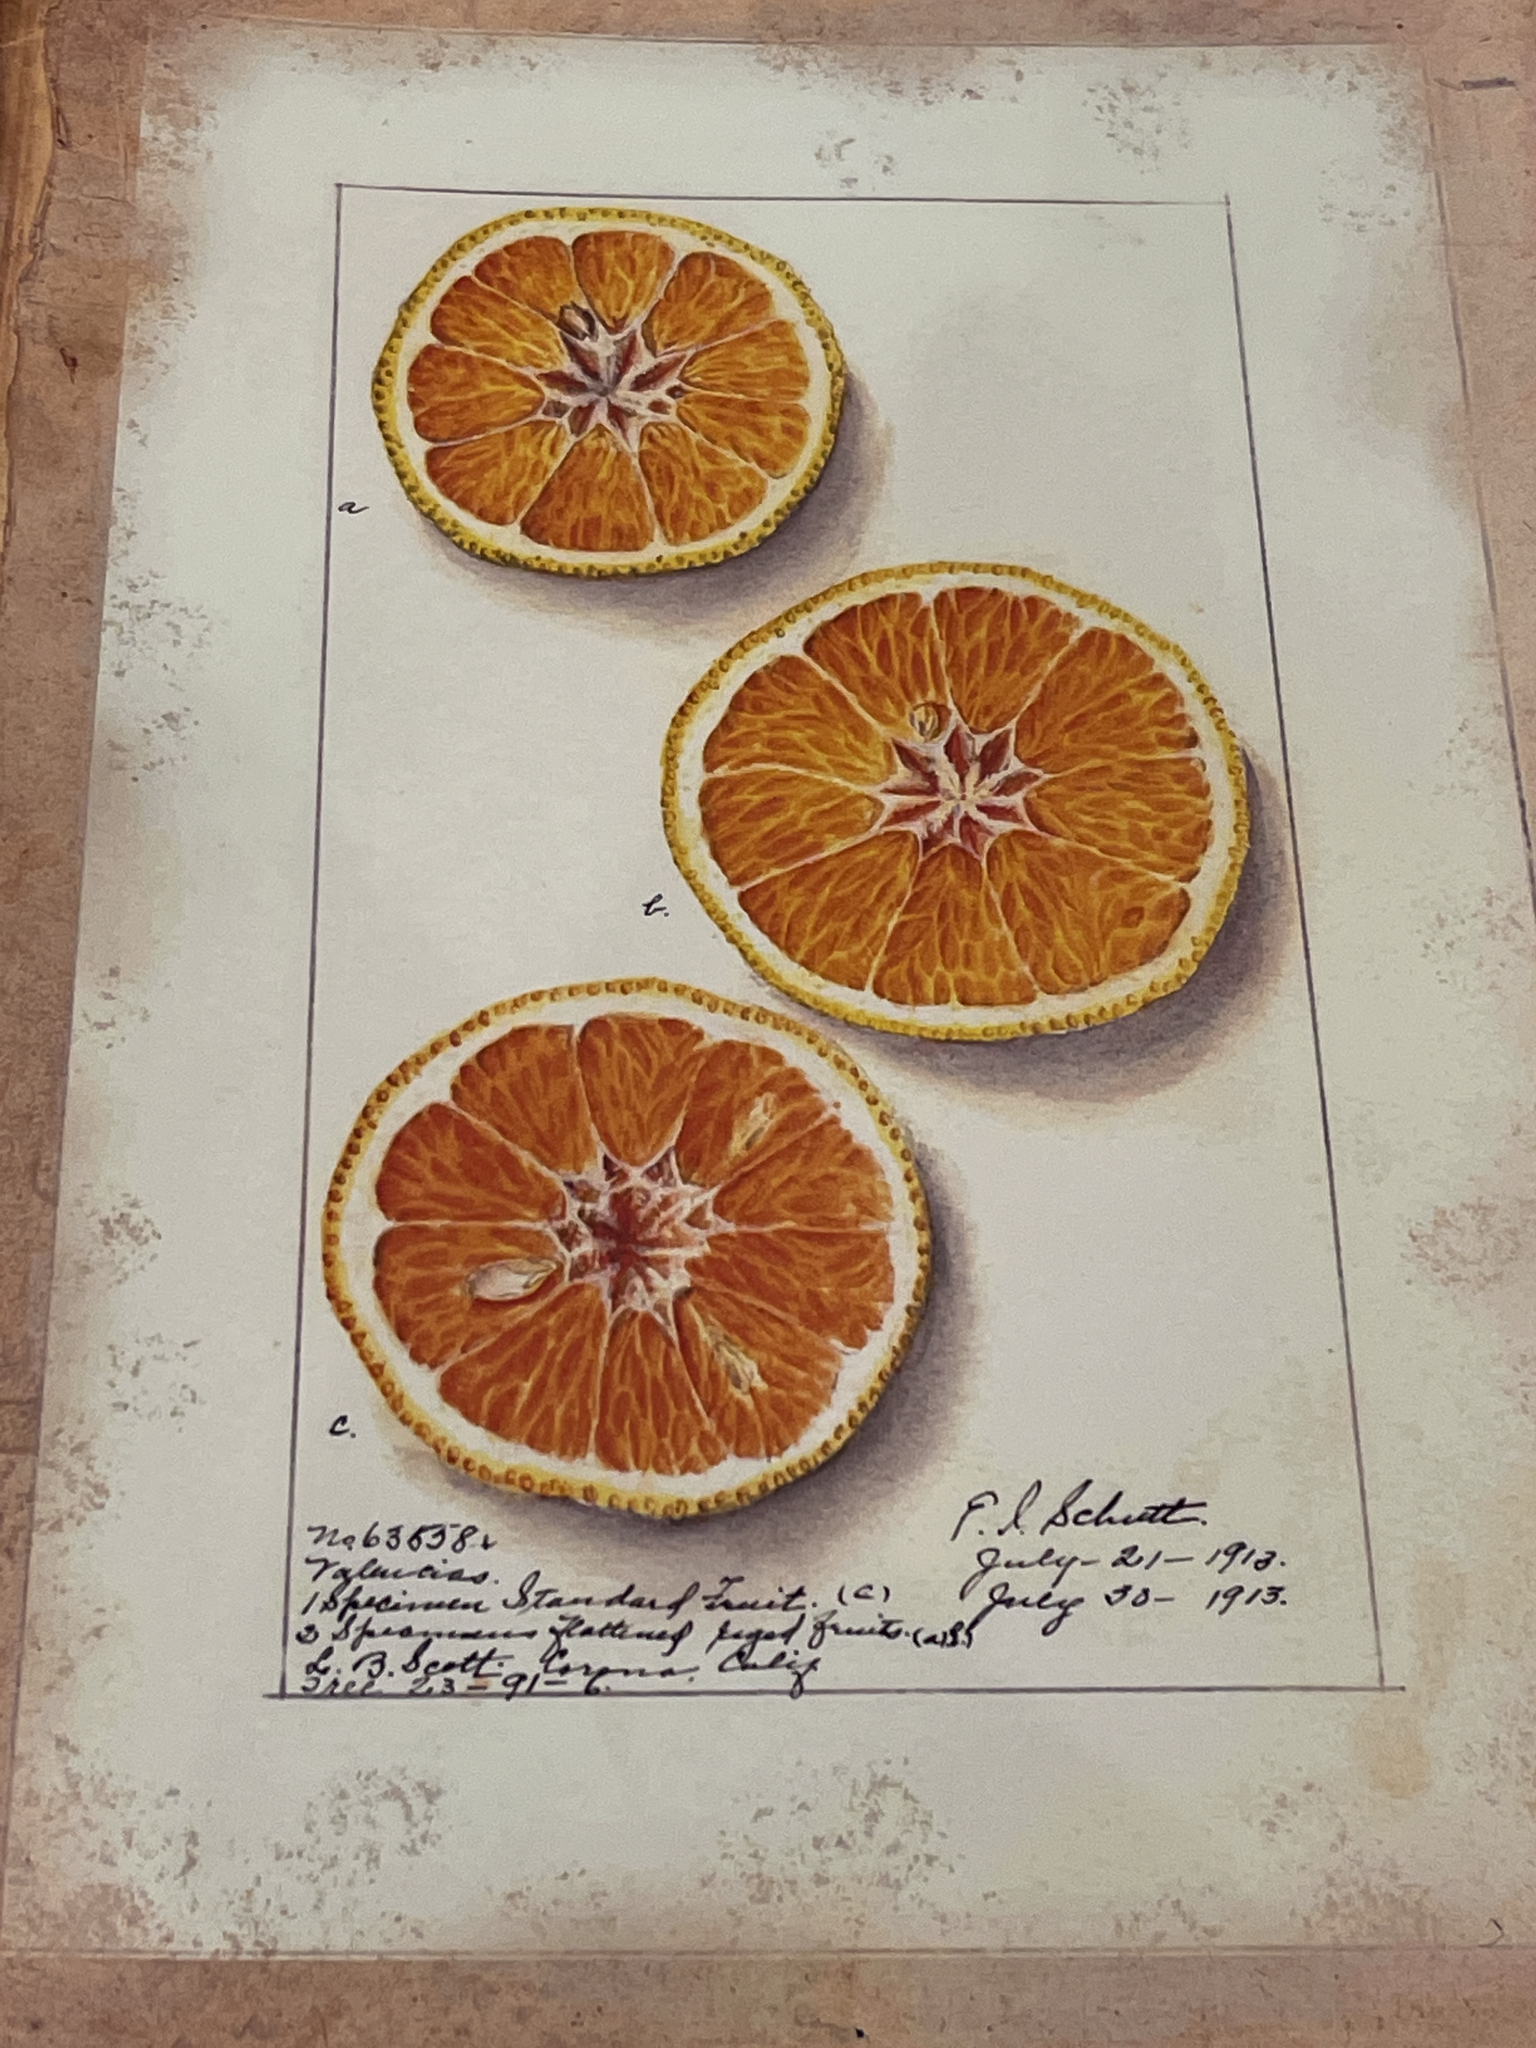 a
b.
c.
No 63558.
Valencias.
1 Specimen Standard Fruit. (C)
Specimens flattened fruits. (a)
L. B. Scott. Corona. Calif
Tree 23-91-6.
Schutt.
July-21-1913.
July 30-1913.